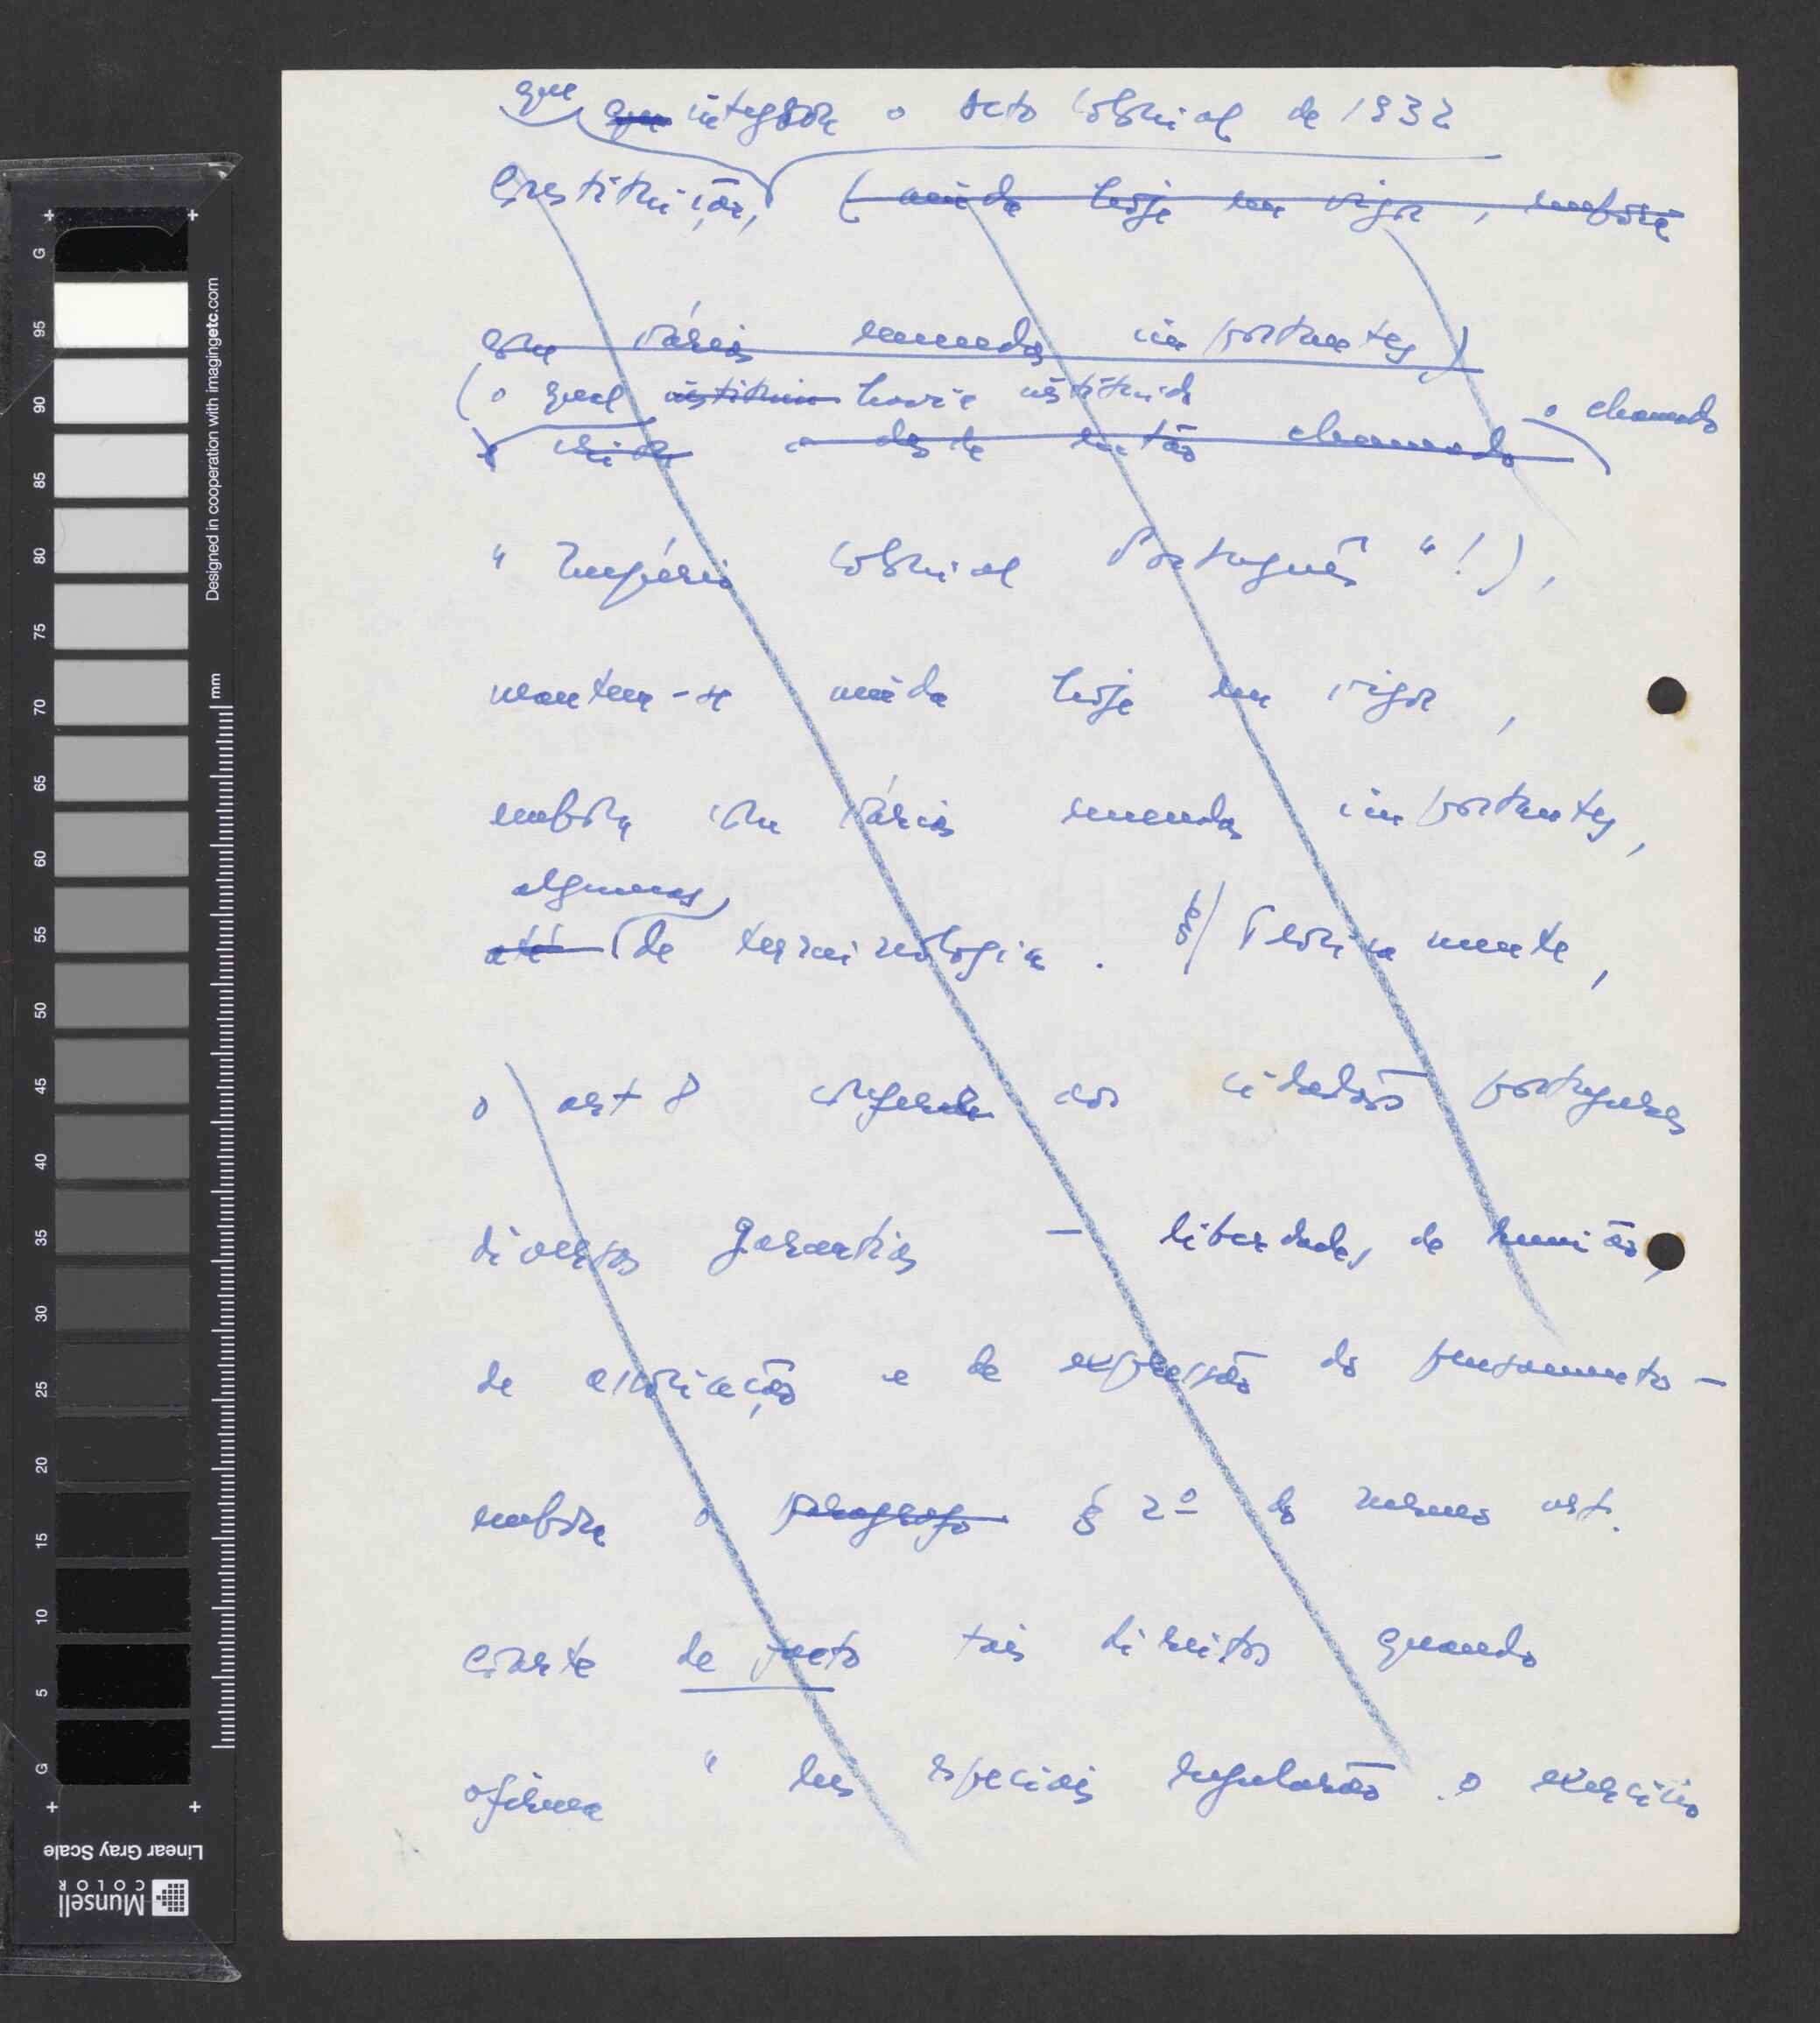 que que integrou o Acto Colonial de 1932
Constituição, (ainda hoje em vigor, embora
com várias emendas importantes)
(o qual instituiu havia instituido
criou o desde então chamado o chamado
"Império Colonial Português"!),
mantem-se ainda hoje em vigor,
embora com várias emendas importantes,
algumas
até de terminologia. §/ Teoricamente,
o art 8 confere aos cidadãos portugueses
diversas garantias — liberdades de reunião,
de associação e de expressão do pensamento —
embora o paragrafo § 2º do mesmo art.
coarte de facto tais direitos quando
afirma "leis especiais regularão o exercício
Designed in cooperation with imagingetc.com
mm
G 95 90 85 80 75 70 65 60 55 50 45 40 35 30 25 20 15 10 5 G
Linear Gray Scale
Munsell
COLOR